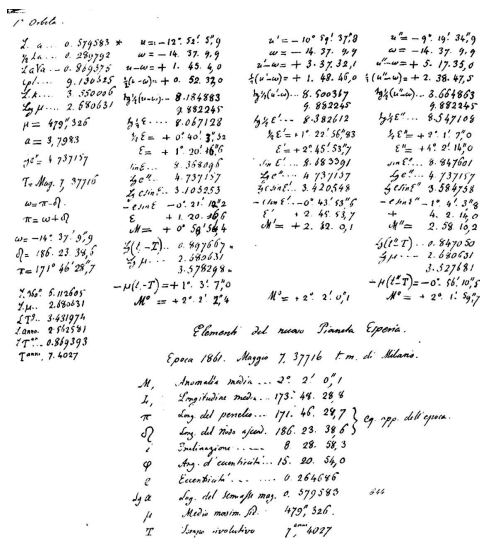 1ª Orbita.
L. a... 0.579583 *
½ La... 0.289792
La√a... 0.869375
9.130625
L.k... 3.550006
Lg μ... 2.680631
μ = 479", 326
a = 3,7983
4.737157
T = Mag. 7, 37716
ω = π - Ω
π = ω + Ω
ω = -14°. 37'. 9",9
Ω = 186. 23. 38,6
π = 171° 46' 28",7
L.360°. 6.112605
L.μ.. 2.680631
L T^g.. 3.431974
L anno. 2.562581
L T^an.. 0.869393
T^anni. 7.4027
u = -12°. 52'. 5",9
ω = -14. 37. 9,9
u-ω = + 1. 45. 4,0
½(u-ω) = + 0. 52. 32,0
tg½(u-ω).. 8.184883
9.882245
tg½E... 8.067128
½E = + 0° 40' 3",32
E = + 1° 20' 16",6
sin E... 8.368096
Lg e"... 4.737157
Lg e sin E.. 3.105253
- e sin E -0°. 21' 12",2
E + 1. 20. 16,6
M = + 0° 58' 54,4
Lg (t-T).. 0.897667n
Lg μ... 2.680631
3.578298n
-μ(t-T) = + 1°. 3'. 7",0
M° = + 2°. 2'. 1",4
u' = -10° 59'. 37",8
ω = -14. 37. 9,9
u'-ω = + 3. 37. 32,1
½(u'-ω) = + 1. 48. 46,0
tg½(u'-ω).. 8.500367
9.882245
tg½E'... 8.382612
½E' = + 1° 22' 56",83
E' = + 2°. 45'. 53",7
sin E'... 8.683391
Lg e"... 4.737157
Lg e sin E'.. 3.420548
- e sin E'.. -0° 43' 53",6
E' + 2. 45. 53,7
M' = + 2. 2. 0,1
M° = + 2°. 2' 0",1
u" = -9°. 19'. 34",9
ω = -14. 37. 9,9
u"-ω = + 5. 17. 35,0
½(u"-ω) = + 2. 38. 47,5
tg½(u"-ω).. 8.664863
9.882245
tg½E"... 8.547108
½E" = + 2°. 1' 7",0
E" = + 4°. 2' 14",0
sin E".. 8.847601
Lg e".. 4.737157
Lg e sin E".. 3.584758
- e sin E" -1°. 4'. 3",8
+ 4. 2. 14,0
M" = 2. 58. 10,2
Lg (t"-T).. 0.847050
Lg μ... 2.680631
3.527681
-μ(t"-T) = -0°. 56'. 10",5
M° = + 2°. 1'. 59",7
Elementi del nuovo Pianeta Esperia.
Epoca 1861. Maggio 7,37716 t. m. di Milano.
M, Anomalia media... 2°. 2'. 0",1
L, Longitudine media... 173. 48. 28,8
π Long. del perielio... 171. 46. 28,7
Ω Long. del Nodo ascend. 186. 23. 38,6 } eq. app. dell'epoca.
i Inclinazione... 8. 28. 58,3
φ Ang. d'eccentricità... 15. 20. 54,0
e Eccentricità... 0.264686
lg a Log. del semiasse mag. 0.579583
μ Medio movim. sid. 479", 326.
T Tempo rivolutivo 7^anni, 4027